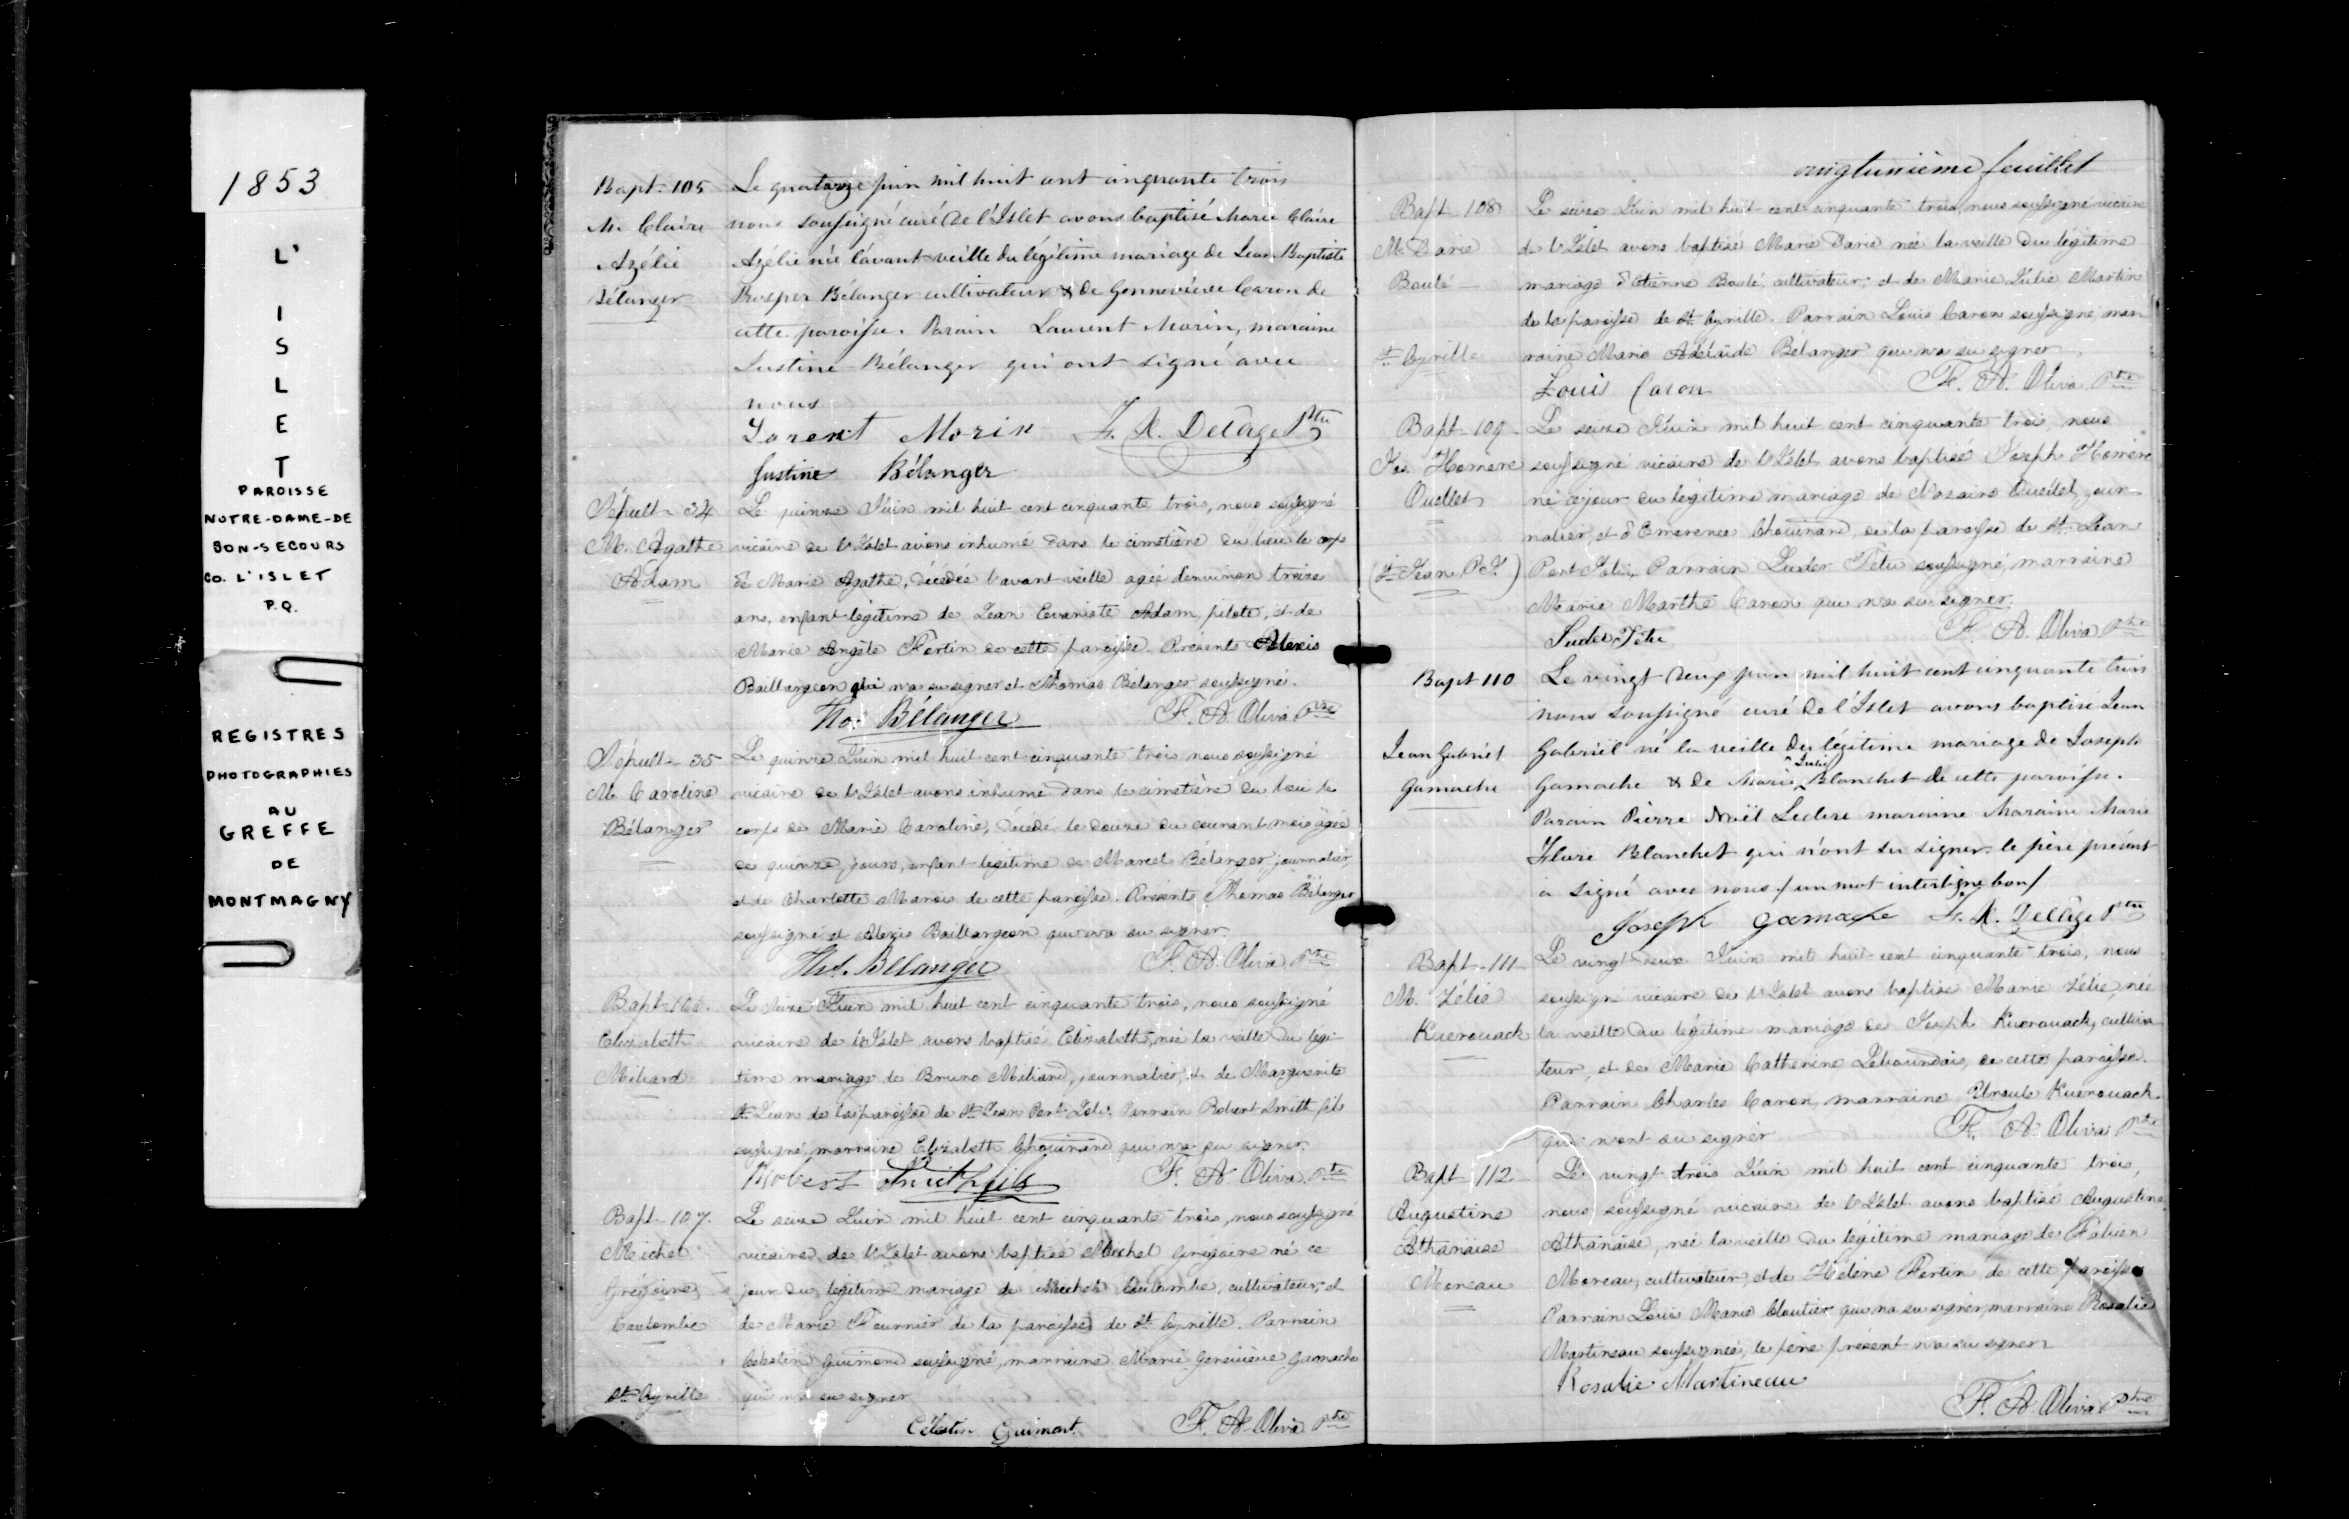 1853
L'
I
S
L
E
T
PAROISSE
NOTRE-DAME-DE
BON-SECOURS
CO. L'ISLET
P.Q.
REGISTRES
PHOTOGRAPHIES
AU
GREFFE
DE
MONTMAGNY
Bapt. 105
M. Claire
Azélie
Bélanger
Le quatorze juin mil huit cent cinquante trois
nous soussigné curé de l'Islet avons baptisé Marie Claire
Azélie née l'avant veille du légitime mariage de Jean Baptiste
Prosper Bélanger cultivateur & de Gennevieve Caron de
cette paroisse. Parain Laurent Morin, maraine
Justine Bélanger qui ont signé avec
nous
Lorent Morin F. X. Delâge Ptre
Justine Bélanger
Sépult - 34
M. Agathe
Adam
Le quinze Juin mil huit cent cinquante trois, nous soussigné
vicaire de l'Islet avons inhumé dans le cimetière du lieu le corps
de Marie Agathe, décédée l'avant-veille agée d'environ treize
ans, enfant légitime de Jean Evariste Adam, pilote, et de
Marie Angèle Fortin de cette paroisse. Présents Alexis
Baillargeon qui n'a su signer et Thomas Bélanger soussigné.
Tho. Bélanger F. A. Oliva Ptre
Sépult - 35
M. Caroline
Bélanger
Le quinze Juin mil huit cent cinquante trois nous soussigné
vicaire de l'Islet avons inhumé dans le cimetière du lieu le
corps de Marie Caroline, décédé le douze du courant mois agée
de quinze jours, enfant légitime de Marcel Bélanger journalier,
et de Charlotte Marois de cette paroisse. Présents Thomas Bélanger
soussigné et Alexis Baillargeon qui n'a su signer.
Tho. Bélanger F. A. Oliva Ptre
Bapt - 106.
Elizabeth
Miliard
Le seize Juin mil huit cent cinquante trois, nous soussigné
vicaire de l'Islet avons baptisé Elizabeth, née la veille du légi-
time mariage de Bruno Miliard, journalier, et de Marguerite
St Jean de la paroisse de St Jean Port Joli. Parrain Robert Smith fils
soussigné, marraine Elizabeth Chouinard qui n'a su signer.
Robert Smith fils F. A. Oliva Ptre
Bapt - 107.
Michel
Grégoire
Coulombe
St Cyrille
Le seize Juin mil huit cent cinquante trois, nous soussigné
vicaire de l'Islet avons baptisé Michel Grégoire né ce
jour du légitime mariage de Michel Coulombe, cultivateur, et
de Marie Fournier de la paroisse de St Cyrille. Parrain
Célestin Guimond soussigné, marraine Marie Geneviève Gamache
qui n'a su signer
Célestin Guimont. F. A. Oliva Ptre
vingtunième feuillet
Bapt - 108
M. Darie
Boulé
St Cyrille
Le seize Juin mil huit cent cinquante trois, nous soussigné vicaire
de l'Islet avons baptisé Marie Darie née la veille du légitime
mariage d'Etienne Boulé, cultivateur, et de Marie Julie Martin
de la paroisse de St Cyrille. Parrain Louis Caron soussigné, mar
raine Marie Adélaïde Bélanger qui n'a su signer.
Louis Caron F. A. Oliva Ptre
Bapt - 109
Jos. Homère
Ouellet
(St Jean P. J.)
Le seize Juin mil huit cent cinquante trois, nous
soussigné vicaire de l'Islet avons baptisé Joseph Homère
né ce jour du légitime mariage de Nazaire Ouellet, jour-
nalier, et d'Emérence Chouinard, de la paroisse de St Jean
Port Joli. Parrain Luder Têtu soussigné, marraine
Marie Marthe Caron qui n'a su signer.
Luder Tétu F. A. Oliva Ptre
Bapt 110
Jean Gabriel
Gamache
Le vingt deux juin mil huit cent cinquante trois
nous soussigné curé de l'Islet avons baptisé Jean
Gabriël né la veille du légitime mariage de Joseph
Gamache & de Marie ^Julie Blanchet de cette paroisse.
Parain Pierre Noël Leclerc maraine Maraine Marie
Flavie Blanchet qui n'ont su signer. le père présent
a signé avec nous / un mot interligne bon /
Joseph gamache F. X. Delâge Ptre
Bapt - 111
M. Zélie
Kuerouack
Le vingt deux Juin mil huit cent cinquante trois, nous
soussigné vicaire de l'Islet avons baptisé Marie Zélie, née
la veille du légitime mariage de Joseph Kuerouack, cultiva
teur, et de Marie Catherine Lebourdais, de cette paroisse.
Parrain Charles Caron, marraine Ursule Kuerouack
qui n'ont su signer F. A. Oliva Ptre
Bapt - 112
Augustine
Athanaïse
Moreau
Le vingt trois Juin mil huit cent cinquante trois,
nous soussigné vicaire de l'Islet avons baptisé Augustine
Athanaïse, née la veille du légitime mariage de Fabien
Moreau, cultivateur, et de Hélène Fortin de cette paroisse
Parrain Louis Marie Cloutier qui n'a su signer, marraine Rosalie
Martineau soussignée, le père présent n'a su signer
Rosalie Martineau
F. A. Oliva Ptre